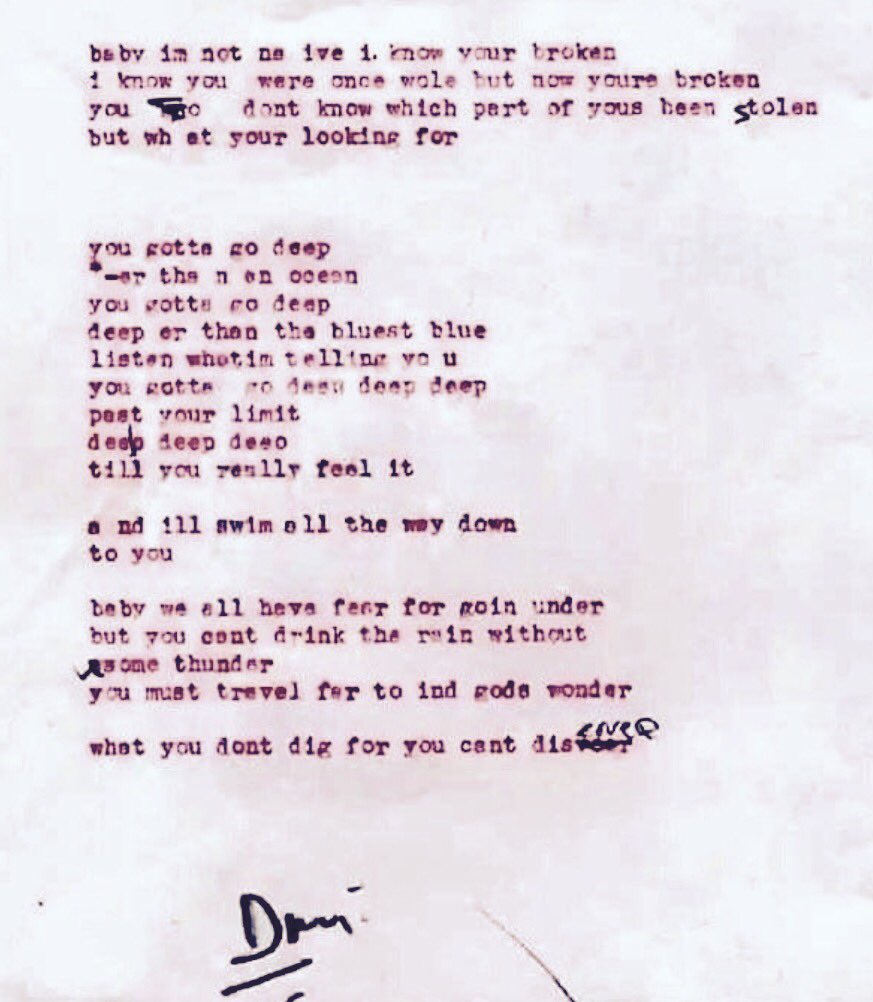 baby im not na ive i. know your broken
i know you were once wole but now youre broken
you dont know which part of yous been stolen
but wh at your looking for
you gotta go deep
-er tha n an ocean
you gotta go deep
deep er than the bluest blue
listen whatim telling yo u
you gotta go deep deep deep
past your limit
deep deep deeo
till you really feel it
a nd ill swim all the way down
to you
baby we all have fear for goin under
but you cant drink the rain without
some thunder
you must travel far to ind gods wonder
what you dont dig for you cant discover